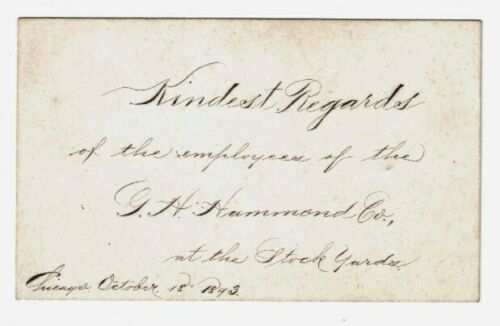 Kindest Regards
of the employees of the
G. H. Hammond Co.,
at the Stock Yards.
Chicago October 18th 1893.